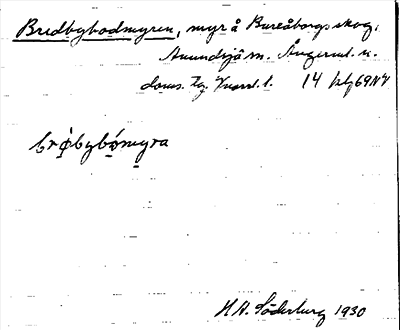 Bredbybodmyren, myr å Bureåborgs skog.
Anundsjö sn. Ångerml. n.
doms. tg. Kvart. 1. 14 kbl 69 NV
brø̀bybómyra
H A. Söderberg 1930